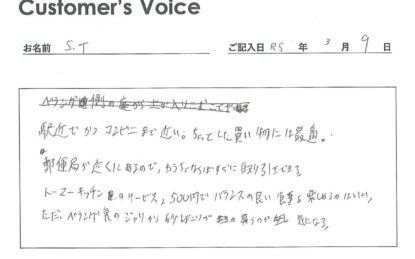 Customer's Voice
お名前 S.T ご記入日 R5 年 3 月 9 日
駅近でかつコンビニまで近い。ちょっとした買い物には最適。
郵便局が近くにあるので、もすぐに取り引きできる
トーコーキッチンのサービス、500円でバランスの良い食事を楽しめるのはいい。
ただ、ベランダ の ジャリから砂ぼこりが 舞うのが 気になる。